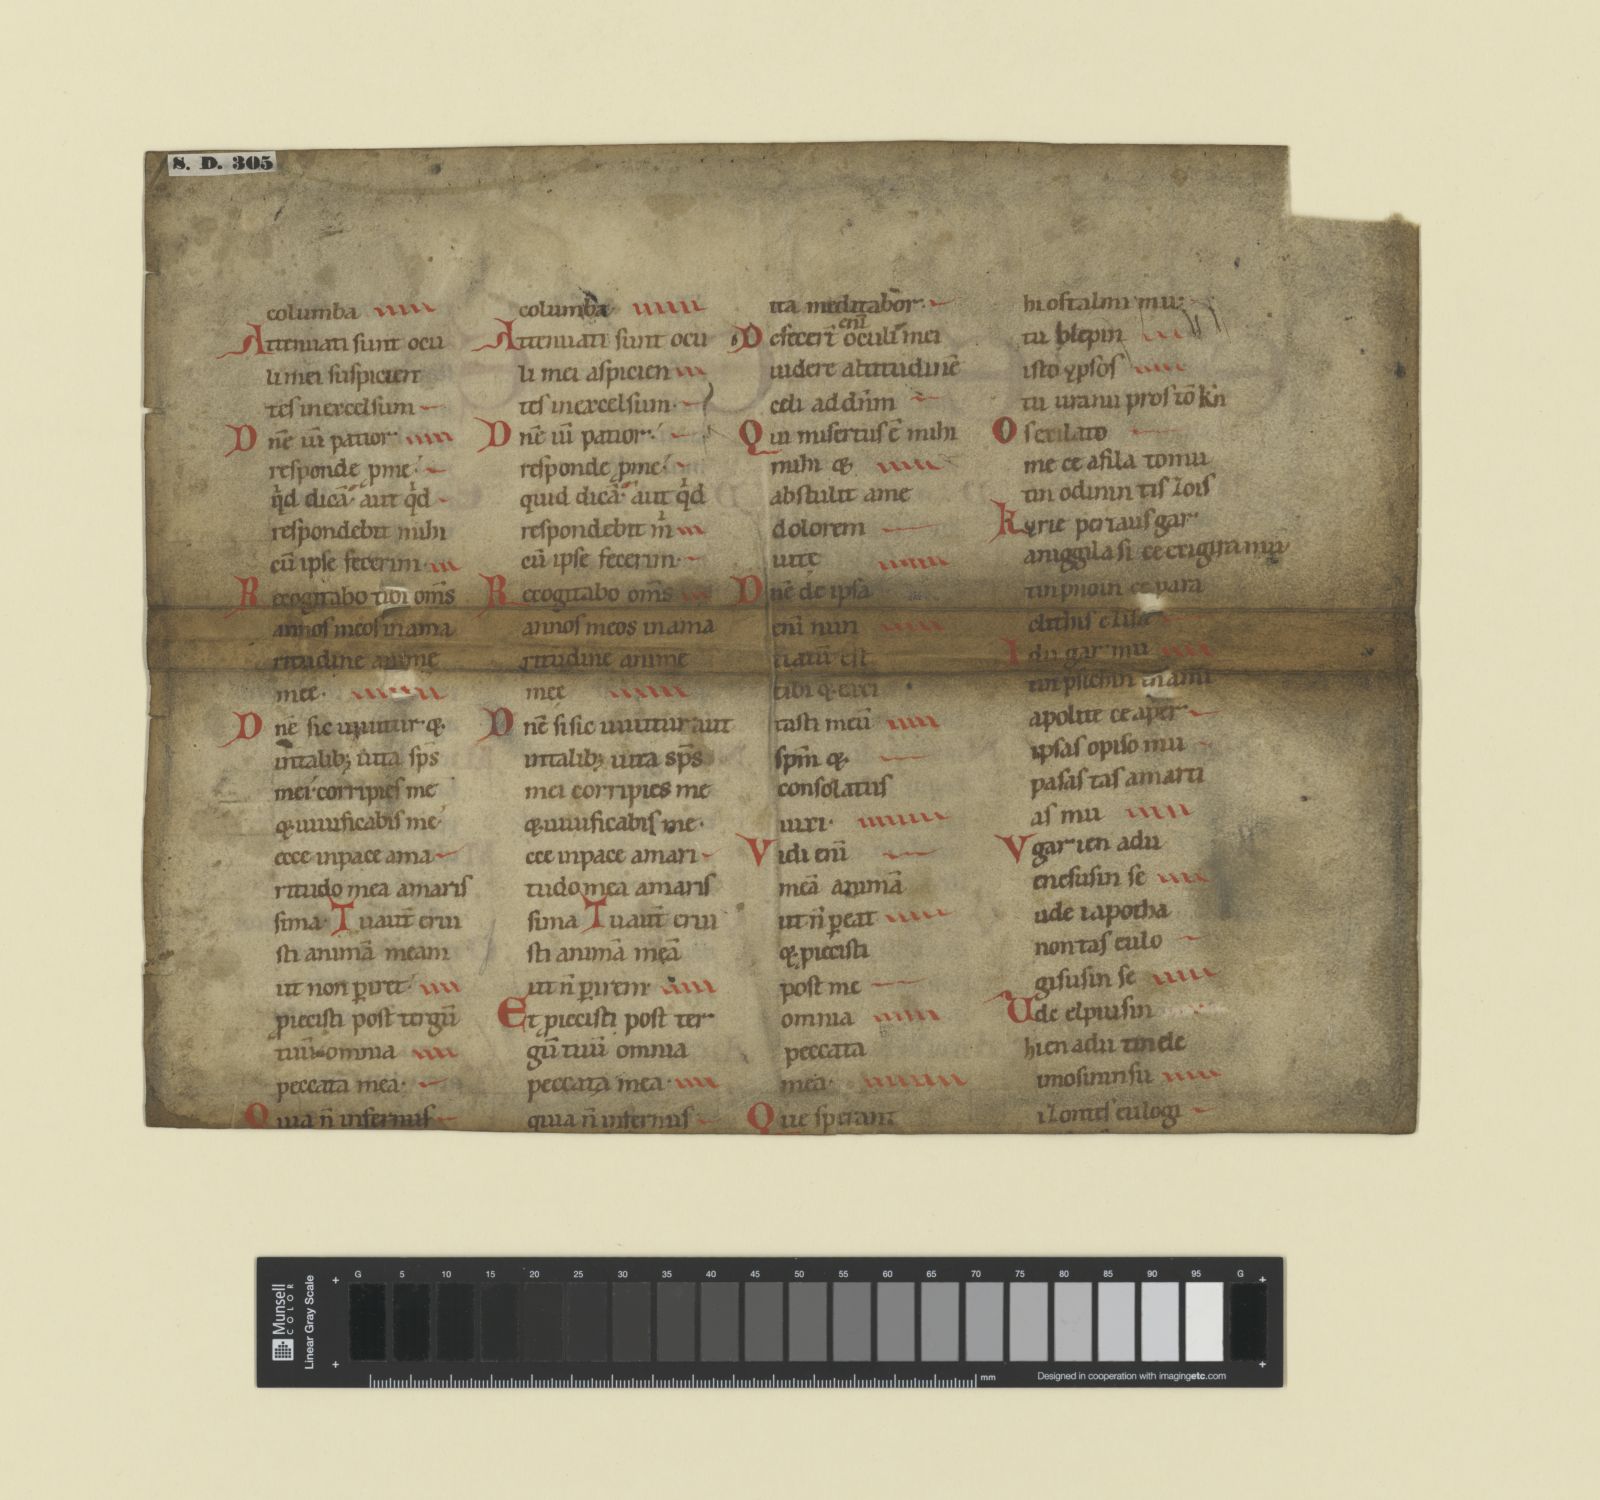 S. D. 305
columba
Attenuati sunt ocu
li mei suspicien
tes in excelsum
Dnē uī patior
responde ꝑ me
qͥd dicā aut qͥd
respondebit mihi
cū ipse fecerim
Recogitabo tibi om̄s
annos meos in ama
ritudine anime
mee
Dnē sic uiuitur q̨
in talibꝫ uita sp̄s
mei corripies me
q̨ uiuificabis me
ecce in pace ama
ritudo mea amaris
sima Tu aut̄ erui
sti animā meam
ut non ꝑiret
ꝓiecisti post tergū
tuū omnia
peccata mea
Quia n̄ infernus
columba
Attenuati sunt ocu
li mei aspicien
tes in excelsum
Dnē uī patior
responde ꝑ me
quid dicā aut qͥd
respondebit mͥ
cū ipse fecerim
Recogitabo om̄s
annos meos in ama
ritudine anime
mee
Dnē si sic uiuitur aut
in talibꝫ uita sp̄s
mei corripies me
q̨ uiuificabis me
ecce in pace amari
tudo mea amaris
sima Tu aut̄ erui
sti animā meā
ut n̄ ꝑiret
Et ꝓiecisti post ter
gū tuū omnia
peccata mea
quia n̄ infernus
ita meditabor
Defecer̄t enī oculi mei
uidere altitudinē
celi ad dn̄m
Qui misertus ē mihi
mihi q̨
abstulit a me
dolorem
uite
Dnē de ipsa
enī nun
tiatū est
tibi q̨ exci
tasti meū
spm̄ q̨
consolatus
uixi
Vidi enī
meā animā
ut n̄ ꝑeat
q̨ ꝓiecisti
post me
omnia
peccata
mea
Que sperant
hi oftalmi mu
tu blepin
isto ypsos
tu uranu pros tō kn̄
O sexilato
me ce afila to mu
tin odinin tis zois
Kyrie peri aus gar
aniggila si ce exigira mu
tin pnoin ce para
clithis
Idu gar mu
tin psichin
apolite ce aper
ipsas opiso mu
pasas tas amarti
as mu
V gar ien adu
enesusin se
ude i apotha
nontas eulo
gisusin se
Ude elpiusin
hi en adu tin ele
imosinin su
i zontes eulogi
Munsell
COLOR
Linear Gray Scale
G 5 10 15 20 25 30 35 40 45 50 55 60 65 70 75 80 85 90 95 G
mm
Designed in cooperation with imagingetc.com